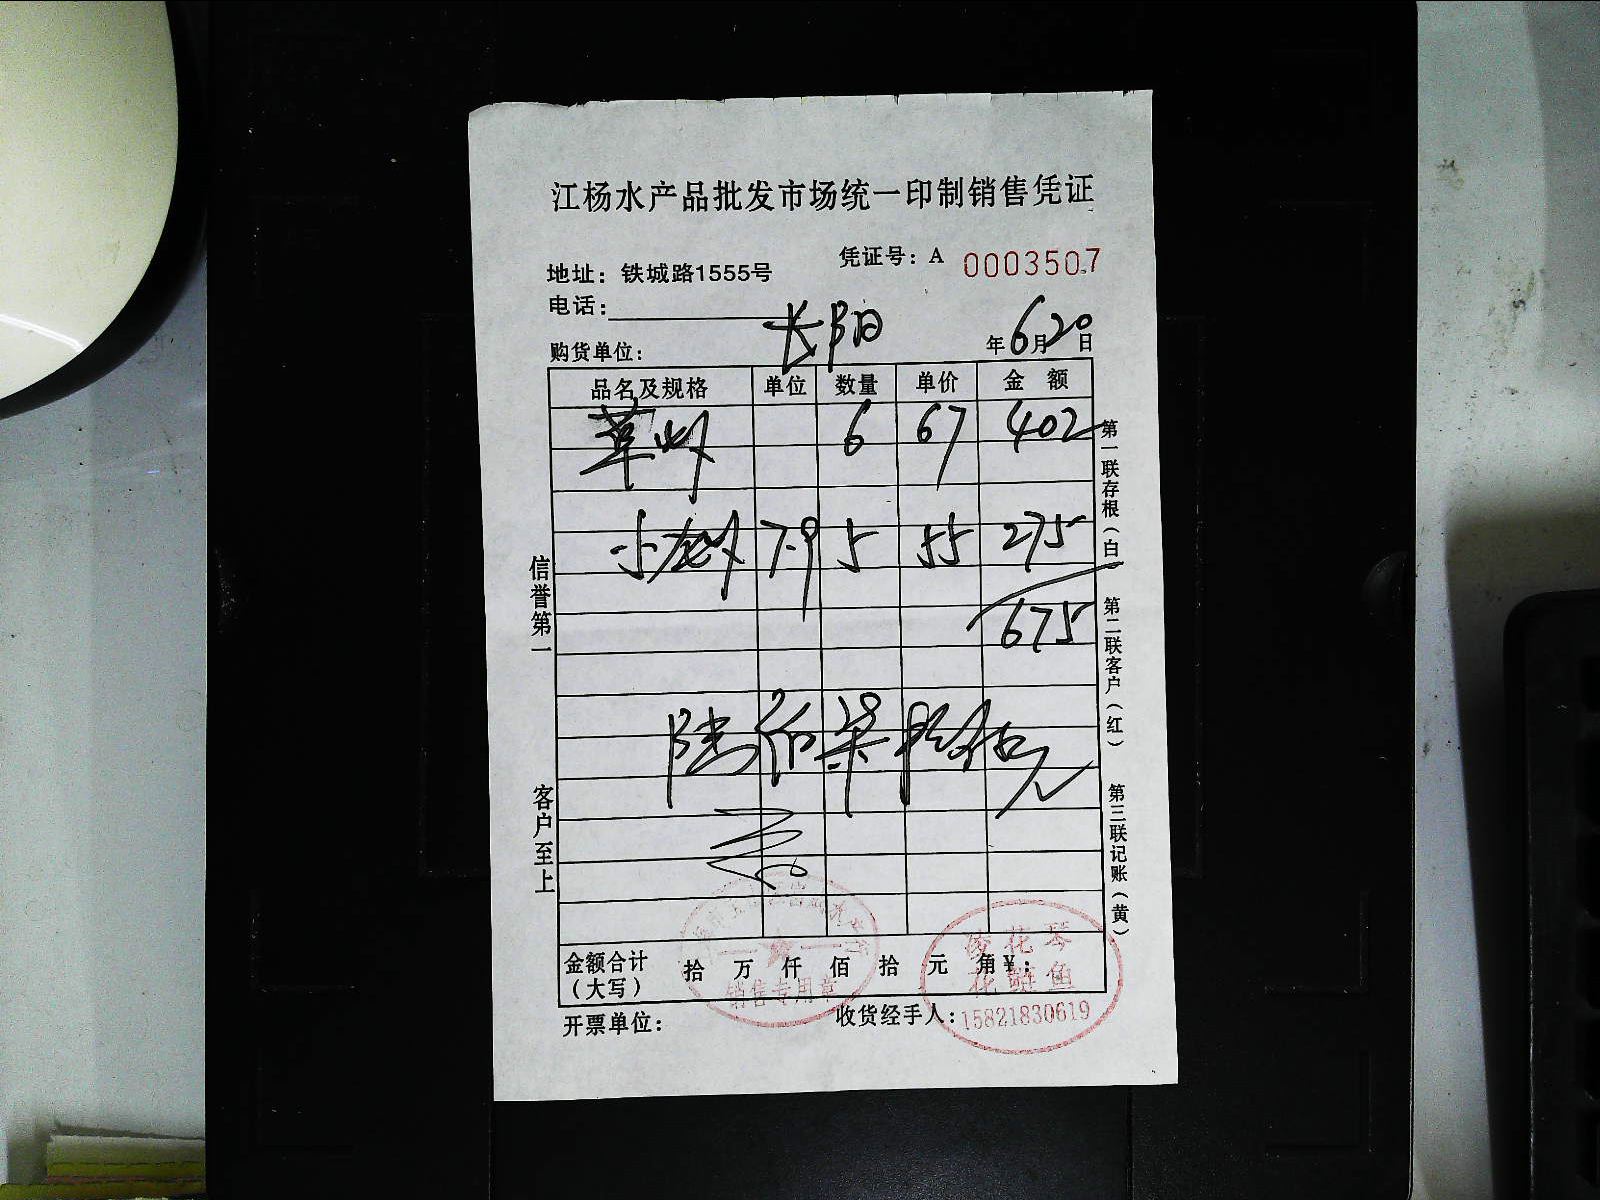 江杨水产品批发市场统一印制销售凭证
凭证号：A 0003507
地址：铁城路1555号
电话：
购货单位： 长阳 年6月20日
品名及规格 单位 数量 单价 金额
草虾 6 67 402
小龙虾 7-9 5 55 275
675
陆佰柒拾伍元
金额合计（大写） 拾 万 仟 佰 拾 元 角 ￥：
开票单位： 收货经手人：
信誉第一
客户至上
第一联存根（白）
第二联客户（红）
第三联记账（黄）
销售专用章
花琴
花鲢鱼
15821830619